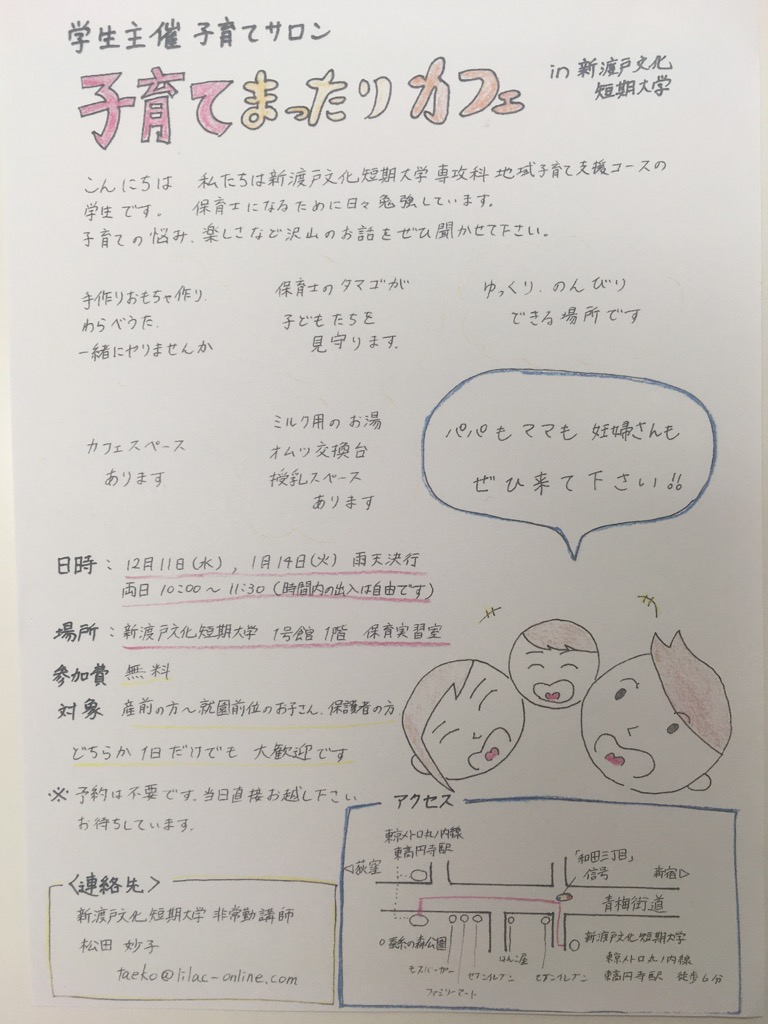 学生主催 子育てサロン
子育てまったりカフェ
in 新渡戸文化
短期大学
こんにちは 私たちは新渡戸文化短期大学専攻科 地域子育て支援コースの
学生です。 保育士になるために日々勉強しています。
子育ての悩み、楽しさなど沢山のお話をぜひ聞かせて下さい。
手作りおもちゃ作り、
わらべうた、
一緒にヤりませんか
保育士のタマゴが
子どもたちを
見守ります。
ゆっくり、のんびり
できる場所です
カフェスペース
あります
ミルク用のお湯
オムツ交換台
授乳スペース
あります
パパもママも妊婦さんも
ぜひ来て下さい!!
日時: 12月11日(水), 1月14日(火) 雨天決行
両日 10:00〜11:30 (時間内の出入は自由です)
場所: 新渡戸文化短期大学 1号館 1階 保育実習室
参加費 無料
対象 産前の方〜就園前位のお子さん、保護者の方
どちらか1日だけでも 大歓迎です
※ 予約は不要です。当日直接お越し下さい
お待ちしています。
<連絡先>
新渡戸文化短期大学 非常勤講師
松田 妙子
taeko@lilac-online.com
アクセス
東京メトロ丸ノ内線
東高円寺駅
◁荻窪
「和田三丁目」
信号
新宿▷
青梅街道
蚕糸の森公園
モスバーガー
ファミリーマート
セブンイレブン
はんこ屋
セブンイレブン
新渡戸文化短期大学
東京メトロ丸ノ内線
東高円寺駅 徒歩6分